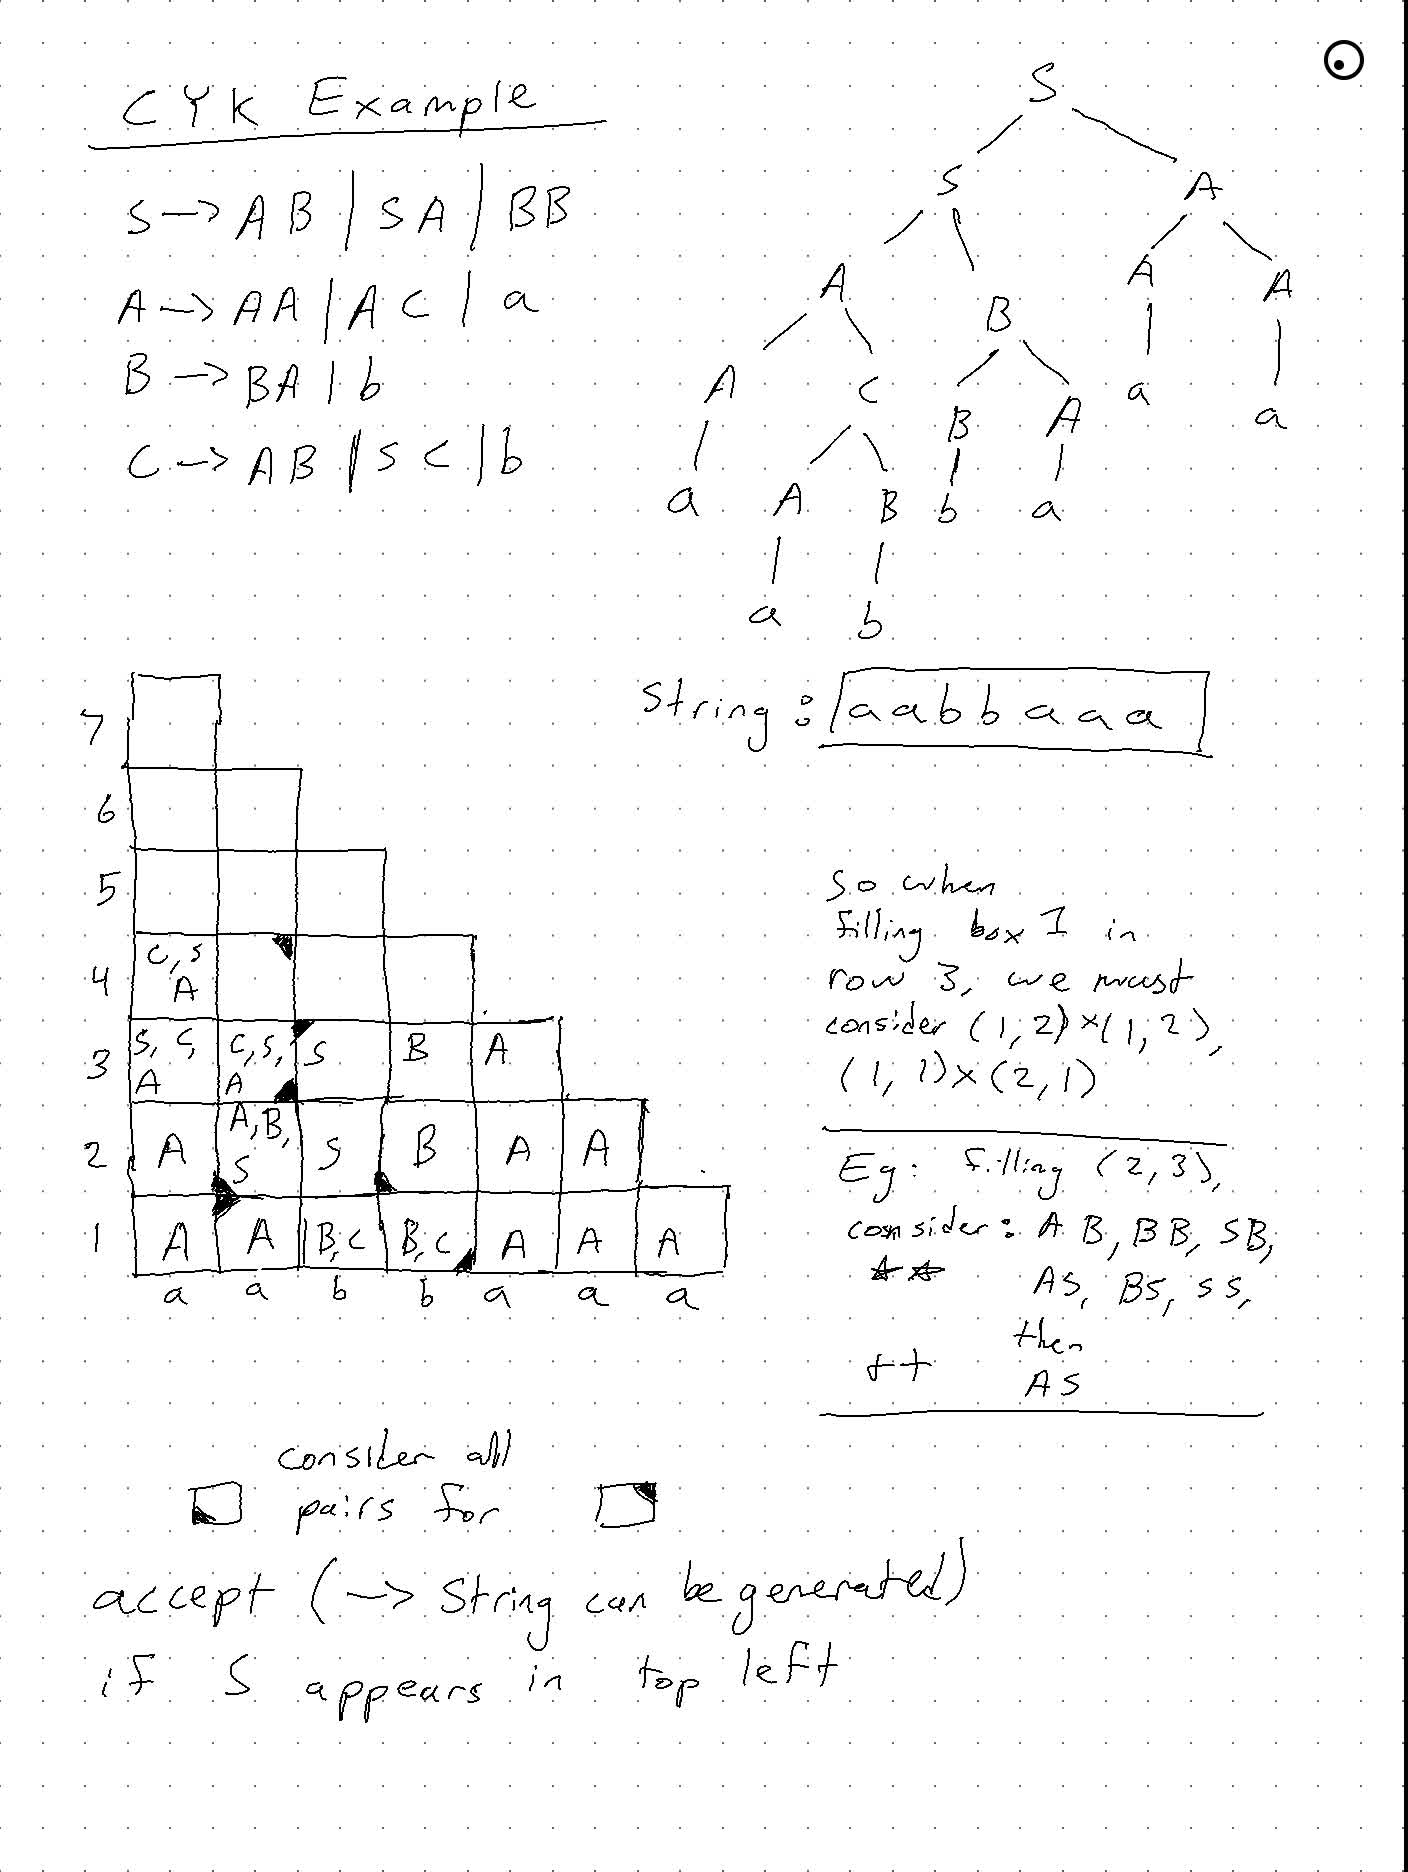 CYK Example
S -> AB | SA | BB
A -> AA | AC | a
B -> BA | b
C -> AB | SC | b
S
S A
A B A A
A C B A a a
a A B b a
a b
String: aabbaaa
7
6
5
4 C,S A
3 S, C, A C,S, A S B A
2 A A,B, S S B A A
1 A A B,C B,C A A A
a a b b a a a
So when
filling box 1 in
row 3, we must
consider (1,2)×(1,2),
(1,1)×(2,1)
Eg: filling (2,3),
consider: AB, BB, SB,
AS, BS, SS,
then
++ AS
consider all
pairs for
accept (-> String can be generated)
if S appears in top left